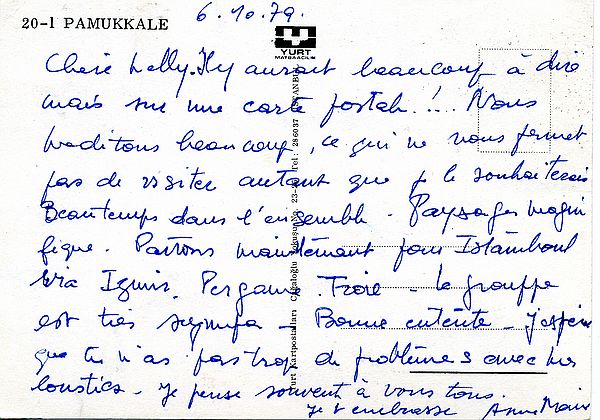 6.10.79.
20-1 PAMUKKALE
YURT
MATBAACILIK
Chère Lolly. Il y aurait beaucoup à dire
mais sur une carte postale !... Nous
méditons beaucoup, ce qui ne nous permet
pas de visiter autant que je le souhaiterais
Beau temps dans l'ensemble - Paysages magni
fique. Partons maintenant pour Istamboul
via Izmir, Pergame. Troie - Le grouppe
est très sympa - Bonne entente - J'espère
que tu n'as pas trop de problèmes avec les
loustics - Je pense souvent à vous tous.
Je t'embrasse Anne Marie
Yurt Kartpostalları Cağaloğlu 23- Tel: 286037 İSTANBUL